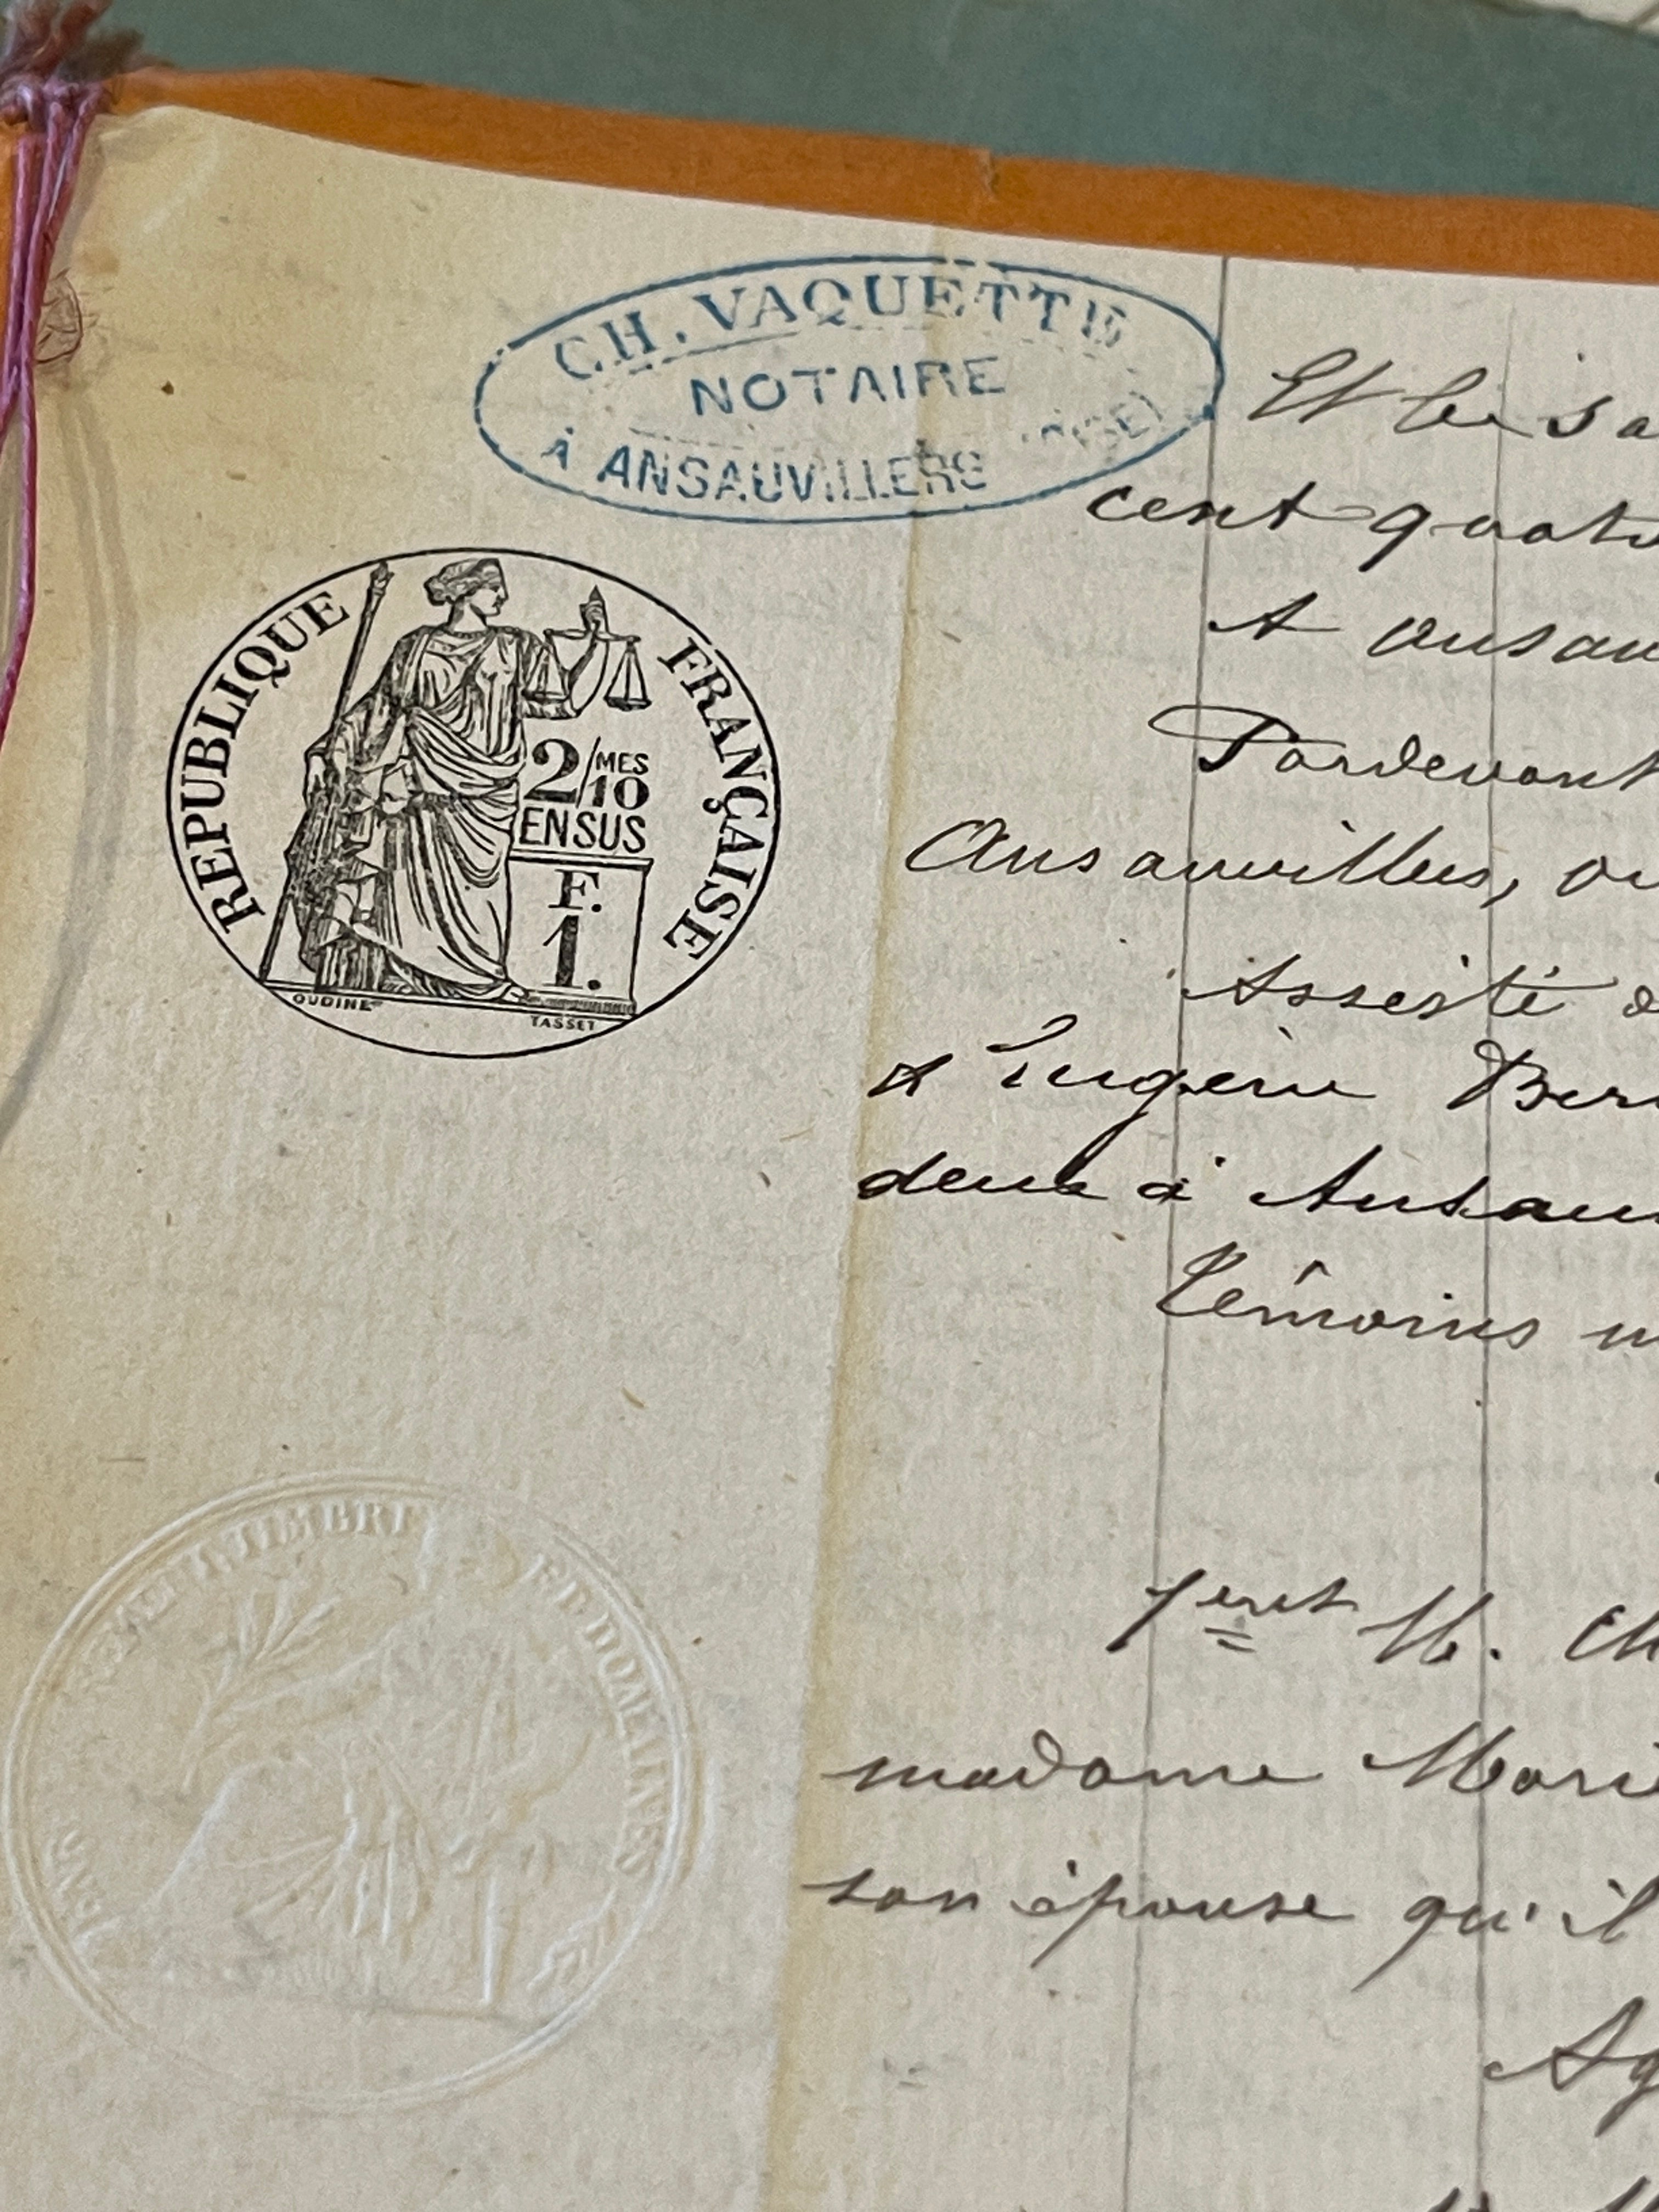 CH. VAQUETTE
NOTAIRE
à ANSAUVILLERS (OISE)
REPUBLIQUE FRANÇAISE
2/MES
10
EN SUS
F.
1.
OUDINÉ
TASSET
TIMBRE ET DOMAINES
Et le sa
cent quat
A Ansau
Pardevant
Ansauvillers, o
Assisté d
& Eugène Ber
deux à Ansau
témoins
1ent M. Ch
madame Marie
son épouse qu'il
Ag